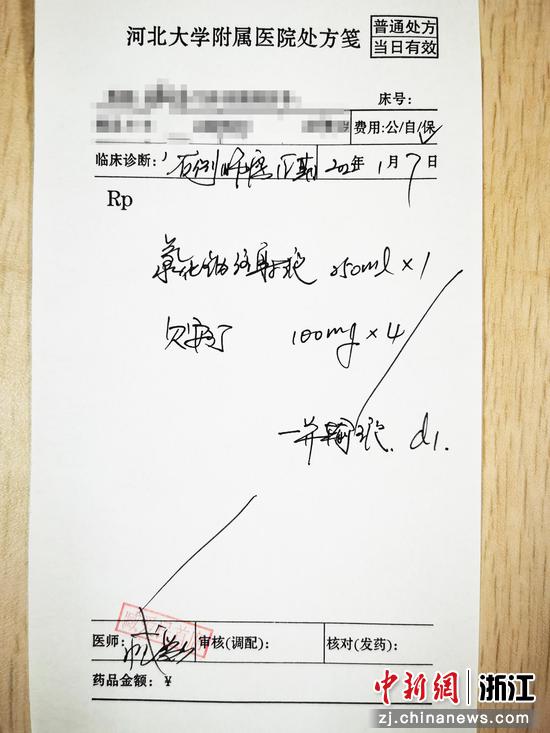 河北大学附属医院处方笺
普通处方
当日有效
床号：
费用：公/自/保
临床诊断： 年1月7日
Rp
氯化钠注射液 250ml × 1
100mg × 4
一并 d1.
医师： 审核(调配)： 核对(发药)：
药品金额：¥
中新網 浙江
zj.chinanews.com